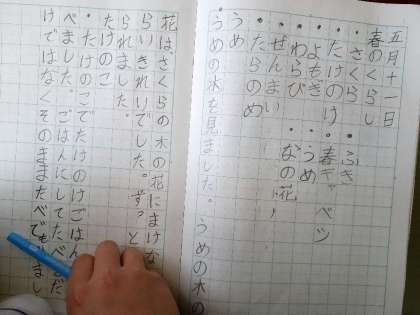 五月十一日
春のくらし
・さくら ・ふき
・たけのこ ・春キャベツ
・よもぎ ・うめ
・わらび ・なの花
・ぜんまい
・たらのめ
うめ
・うめの木を見ました。うめの木の
花は、さくらの木の花にまけな
らいきれいでした。ずっと
られました。
たけのこ
・たけのこでたけのこごはん
べました。ごはんにしてたべるだ
けではなくそのままたべ